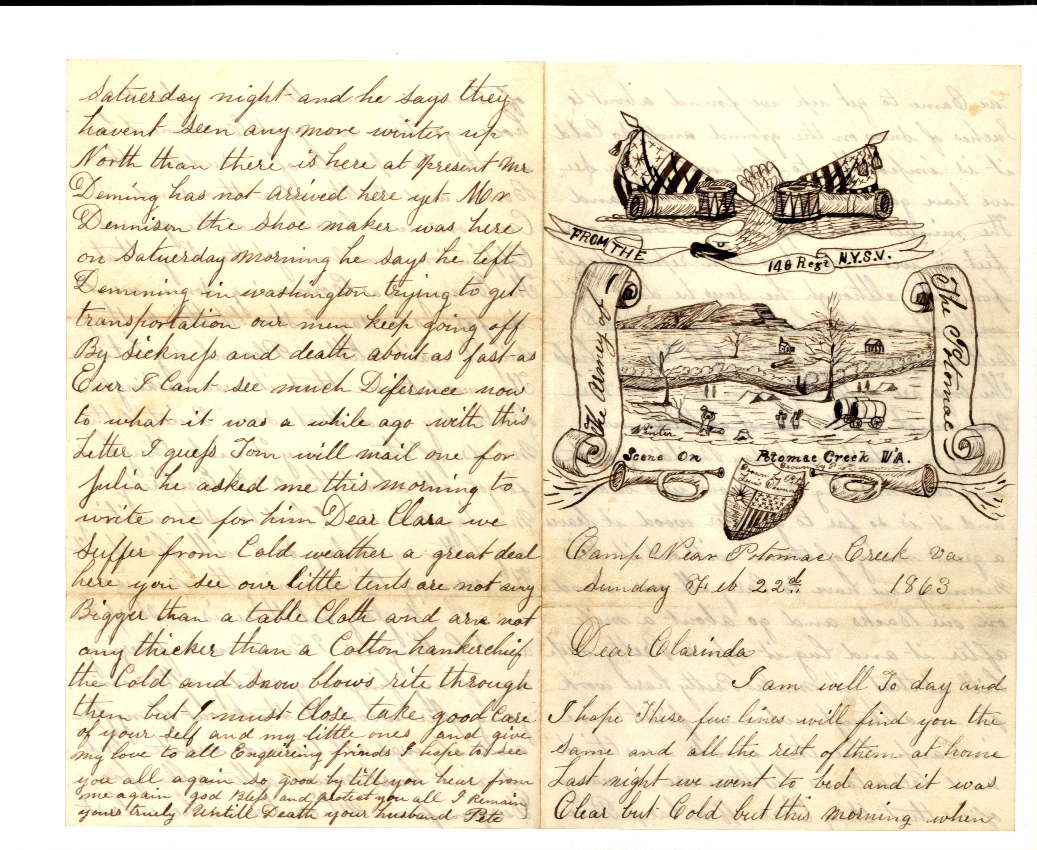 FROM THE
148 Regt N.Y.S.V.
The Armey of
The Potomac
Winter
Scene On Potomac Creek VA.
Drawn by
Camp Near Potomac Creek va
Sunday Feb 22d 1863
Dear Clarinda
I am well To day and
I hope These few lines will find you the
same and all the rest of them at home
Last night we went to bed and it was
Clear but Cold but this morning when
Saturday night and he says they
havent seen any more winter up
North than there is here at present Mr
Deming has not arrived here yet Mr
Dennison the shoe maker was here
on Saturday morning he says he left
Demining in washington trying to get
transportation our men keep going off
By sickness and death about as fast as
Ever I Cant see much Diference now
to what it was a while ago with this
Letter I guess Tom will mail one for
Julia he asked me this morning to
write one for him Dear Clara we
Suffer from Cold weather a great deal
here you see our little tents are not any
Bigger than a table Cloth and are not
any thicker than a Cotton hankerchief
the Cold and snow blows rite through
them but I must Close take good Care
of your self and my little ones and give
my love to all Enquiring frinds I hope to see
you all again so good by till you hear from
me again god Bless and protect you all I Remain
yours truely Untill Death your husband Pete